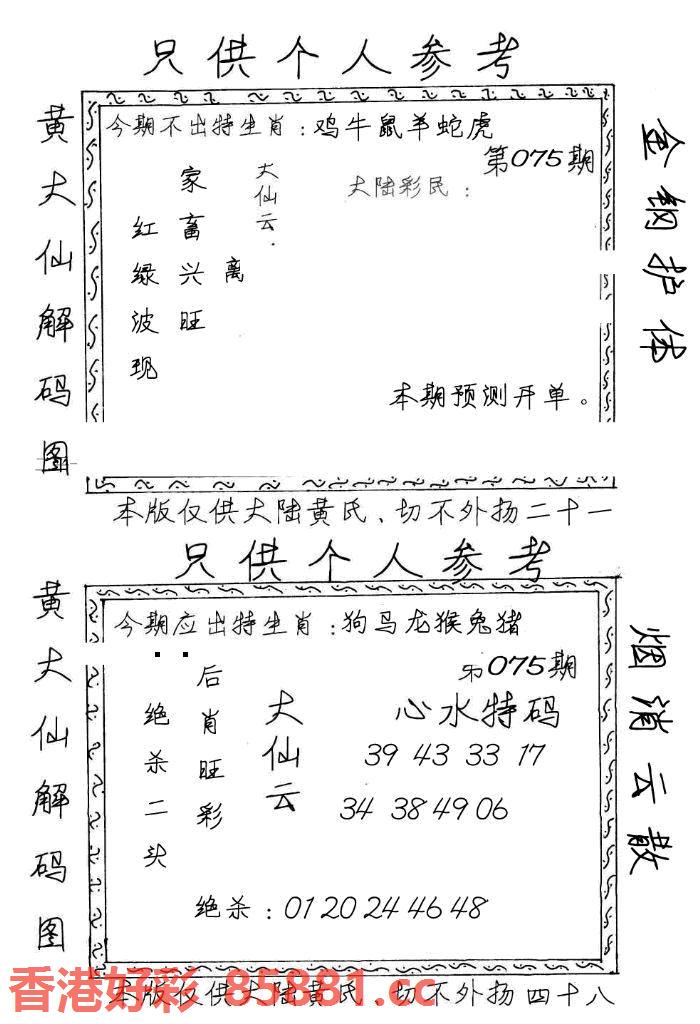 只供个人参考
黄大仙解码图
今期不出特生肖：鸡牛鼠羊蛇虎
第075期
大陆彩民：
大仙云.
离
家畜兴旺
红绿波现
本期预测开单。
金钢护体
本版仅供大陆黄氏、切不外扬二十一
只供个人参考
黄大仙解码图
今期应出特生肖：狗马龙猴兔猪
075期
心水特码
39 43 33 17
34 38 49 06
大仙云
后肖旺彩
绝杀二头
绝杀：01 20 24 46 48
烟消云散
本版仅供大陆黄氏、切不外扬四十八
香港好彩 85881.cc